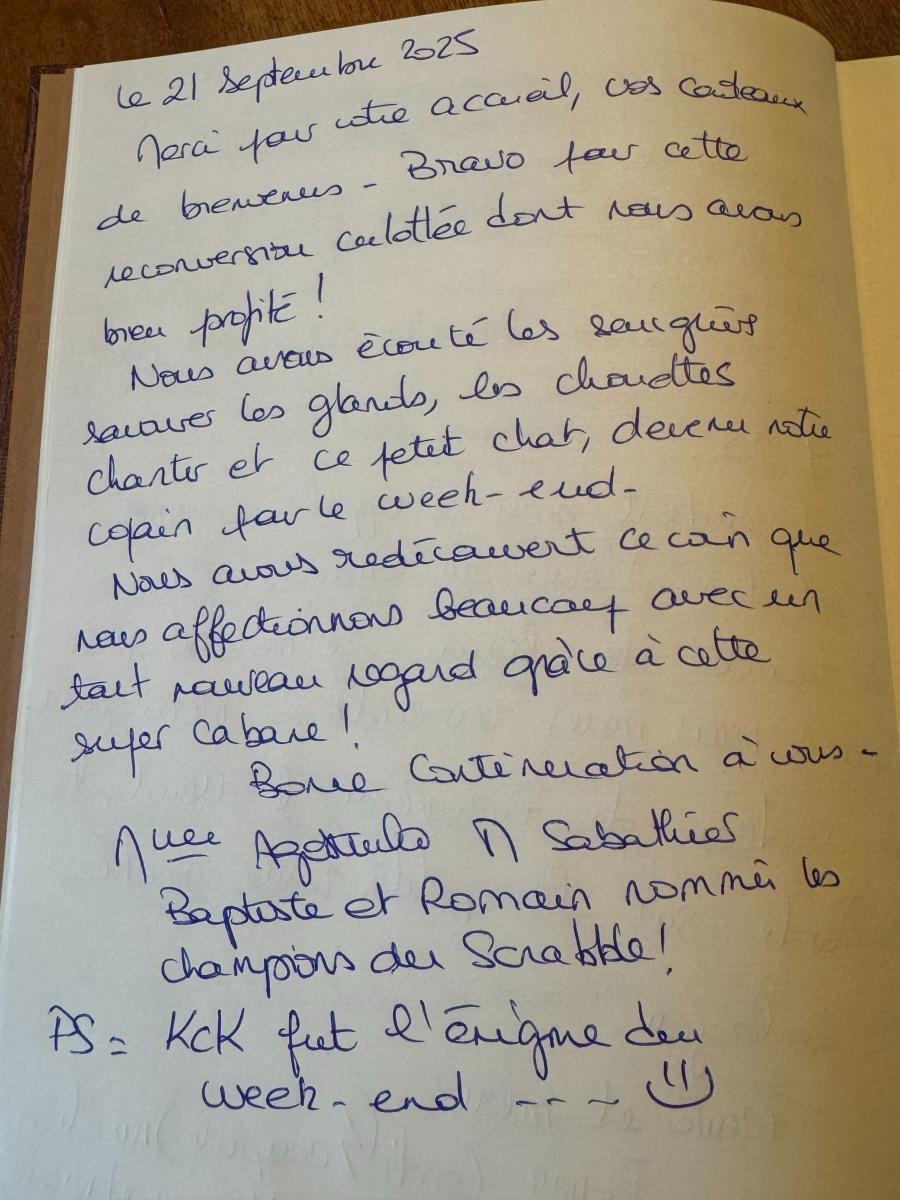 Le 21 Septembre 2025
Merci pour votre accueil, vos cadeaux
de bienvenus - Bravo pour cette
reconversion culottée dont nous avons
bien profité !
Nous avons écouté les sangliers
savourer les glands, les chouettes
chanter et ce petit chat, devenu notre
copain pour le week-end -
Nous avons redécouvert ce coin que
nous affectionnons beaucoup avec un
tout nouveau regard grâce à cette
super cabane !
Bonne Continuation à vous -
Mme M Sabathier
Baptiste et Romain nommés les
champions du Scrabble !
PS = KCK fut l'énigme du
week-end ----